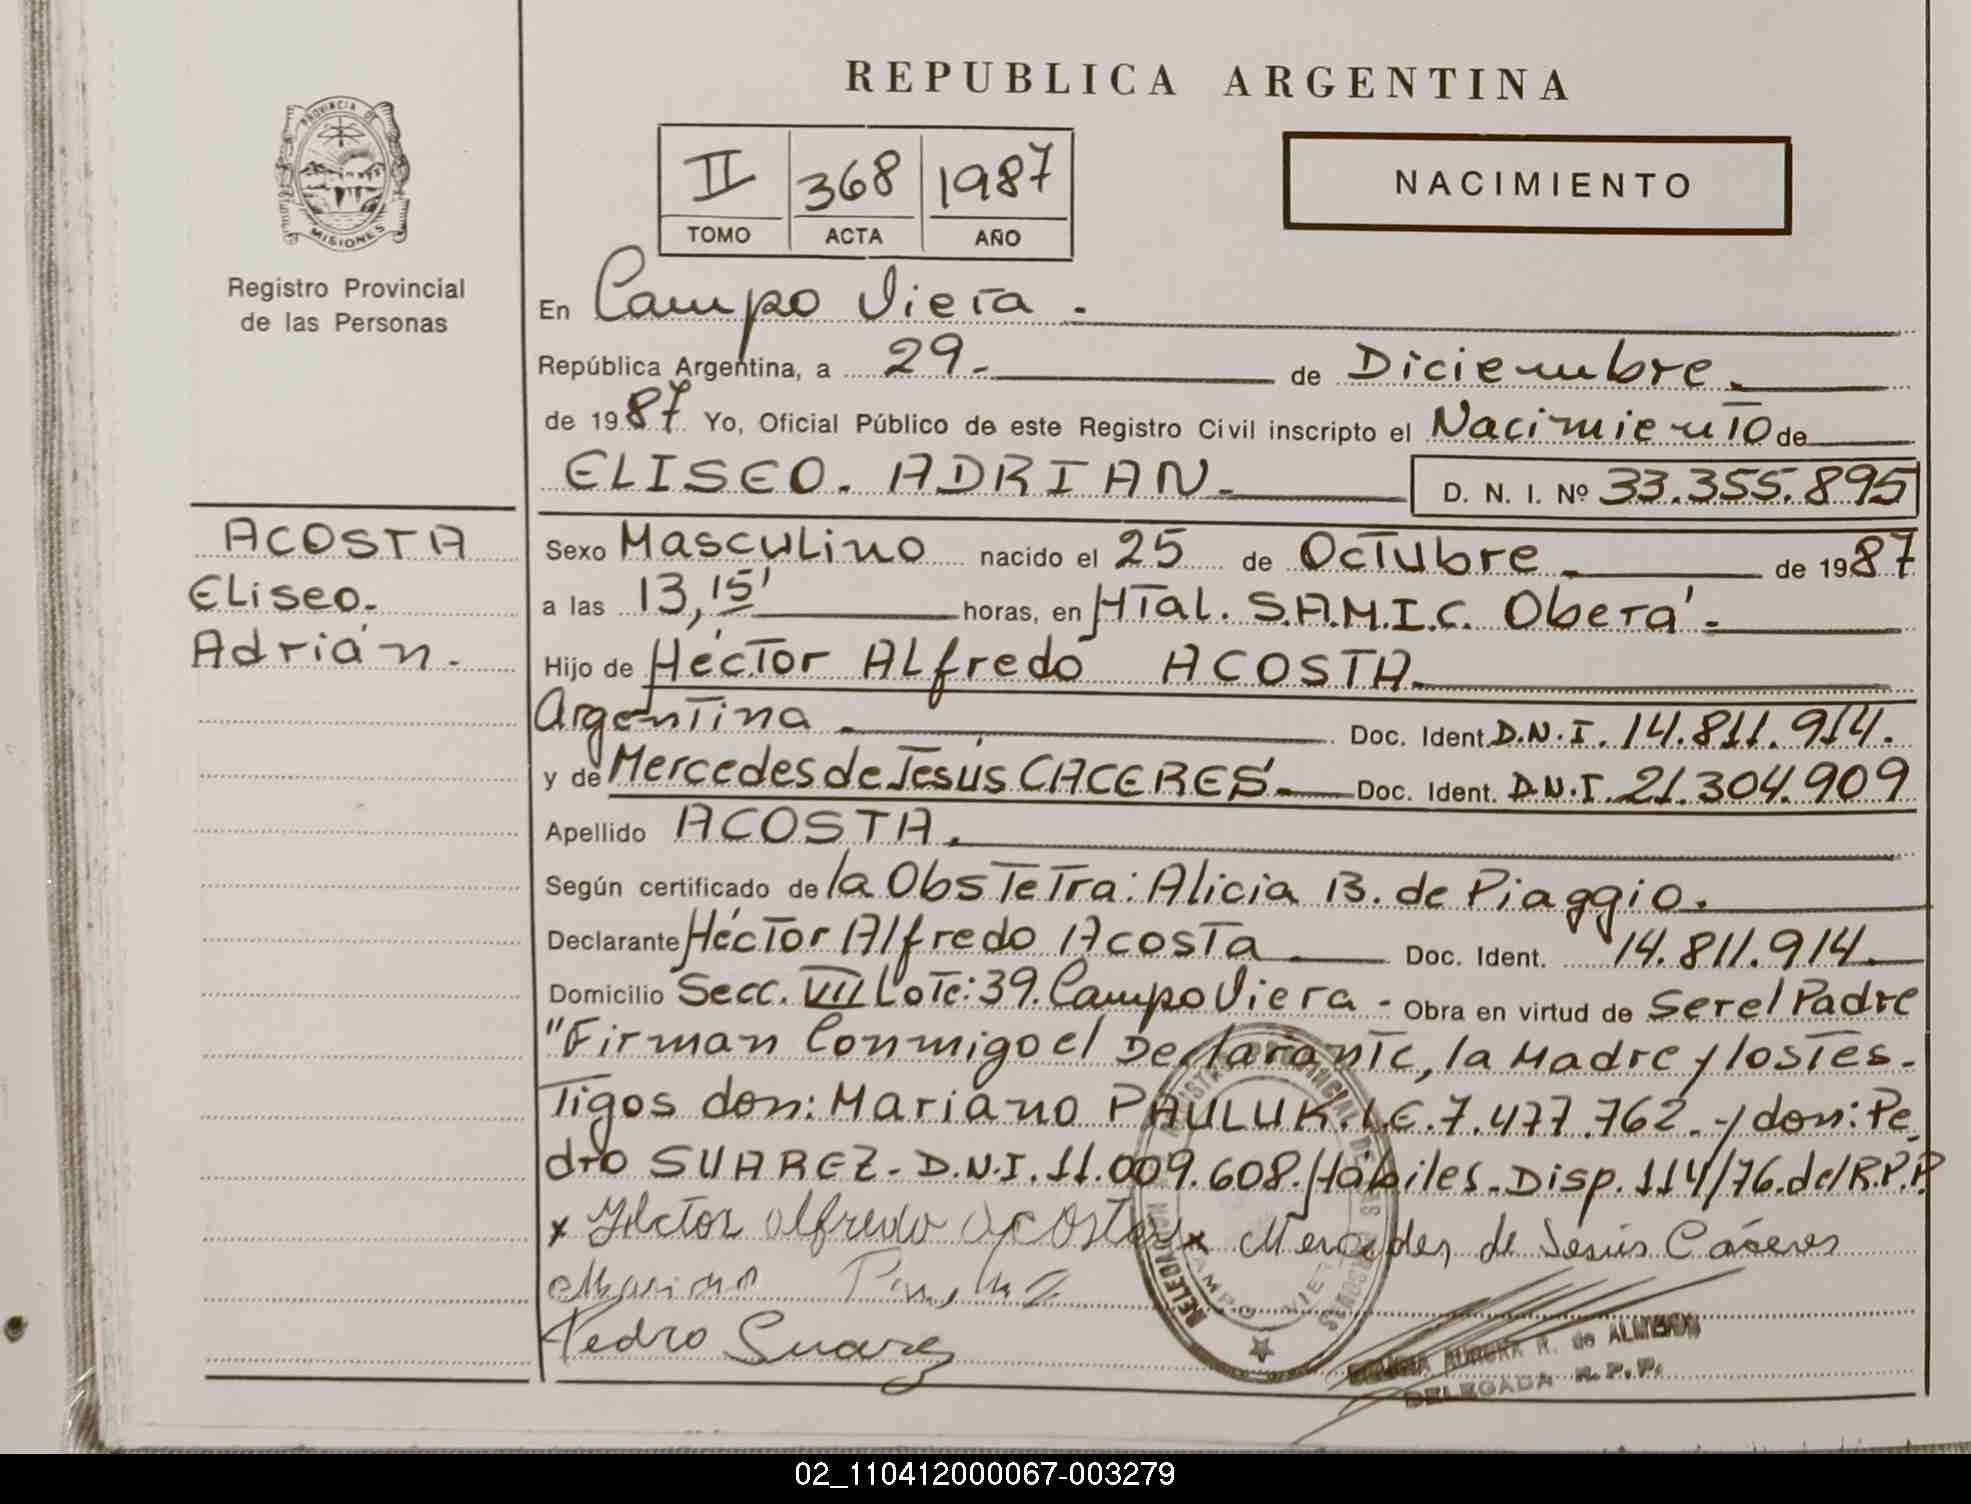 REPUBLICA ARGENTINA
PROVINCIA DE
MISIONES
Registro Provincial
de las Personas
II 368 1987
TOMO ACTA AÑO
NACIMIENTO
En Campo Viera.
República Argentina, a 29.- de Diciembre.
de 1987 Yo, Oficial Público de este Registro Civil inscripto el Nacimiento de
ELISEO. ADRIAN. D. N. I. Nº 33.355.895
ACOSTA
Eliseo.
Adrián.
Sexo Masculino nacido el 25 de Octubre. de 1987
a las 13,15' horas, en HTal. S.A.M.I.C. Oberá.
Hijo de Héctor Alfredo ACOSTA.
Argentina. Doc. Ident. D.N.I. 14.811.914.
y de Mercedes de Jesús CACERES. Doc. Ident. D.N.I. 21.304.909
Apellido ACOSTA.
Según certificado de la Obstetra: Alicia B. de Piaggio.
Declarante Héctor Alfredo Acosta Doc. Ident. 14.811.914.
Domicilio Secc. VII Lote: 39. Campo Viera. Obra en virtud de Ser el Padre
"Firman Conmigo el Declarante, la Madre y los Tes-
Tigos don: Mariano PAULUK. L.E. 7.477.762.- y don: Pe-
dro SUAREZ- D.N.I. 11.009.608. Hábiles. Disp. 114/76. del R.P.P.
x Héctor Alfredo Acosta x Mercedes de Jesús Cáceres
Pedro Suarez
AURORA R. de
DELEGADA R.P.P.
02_110412000067-003279